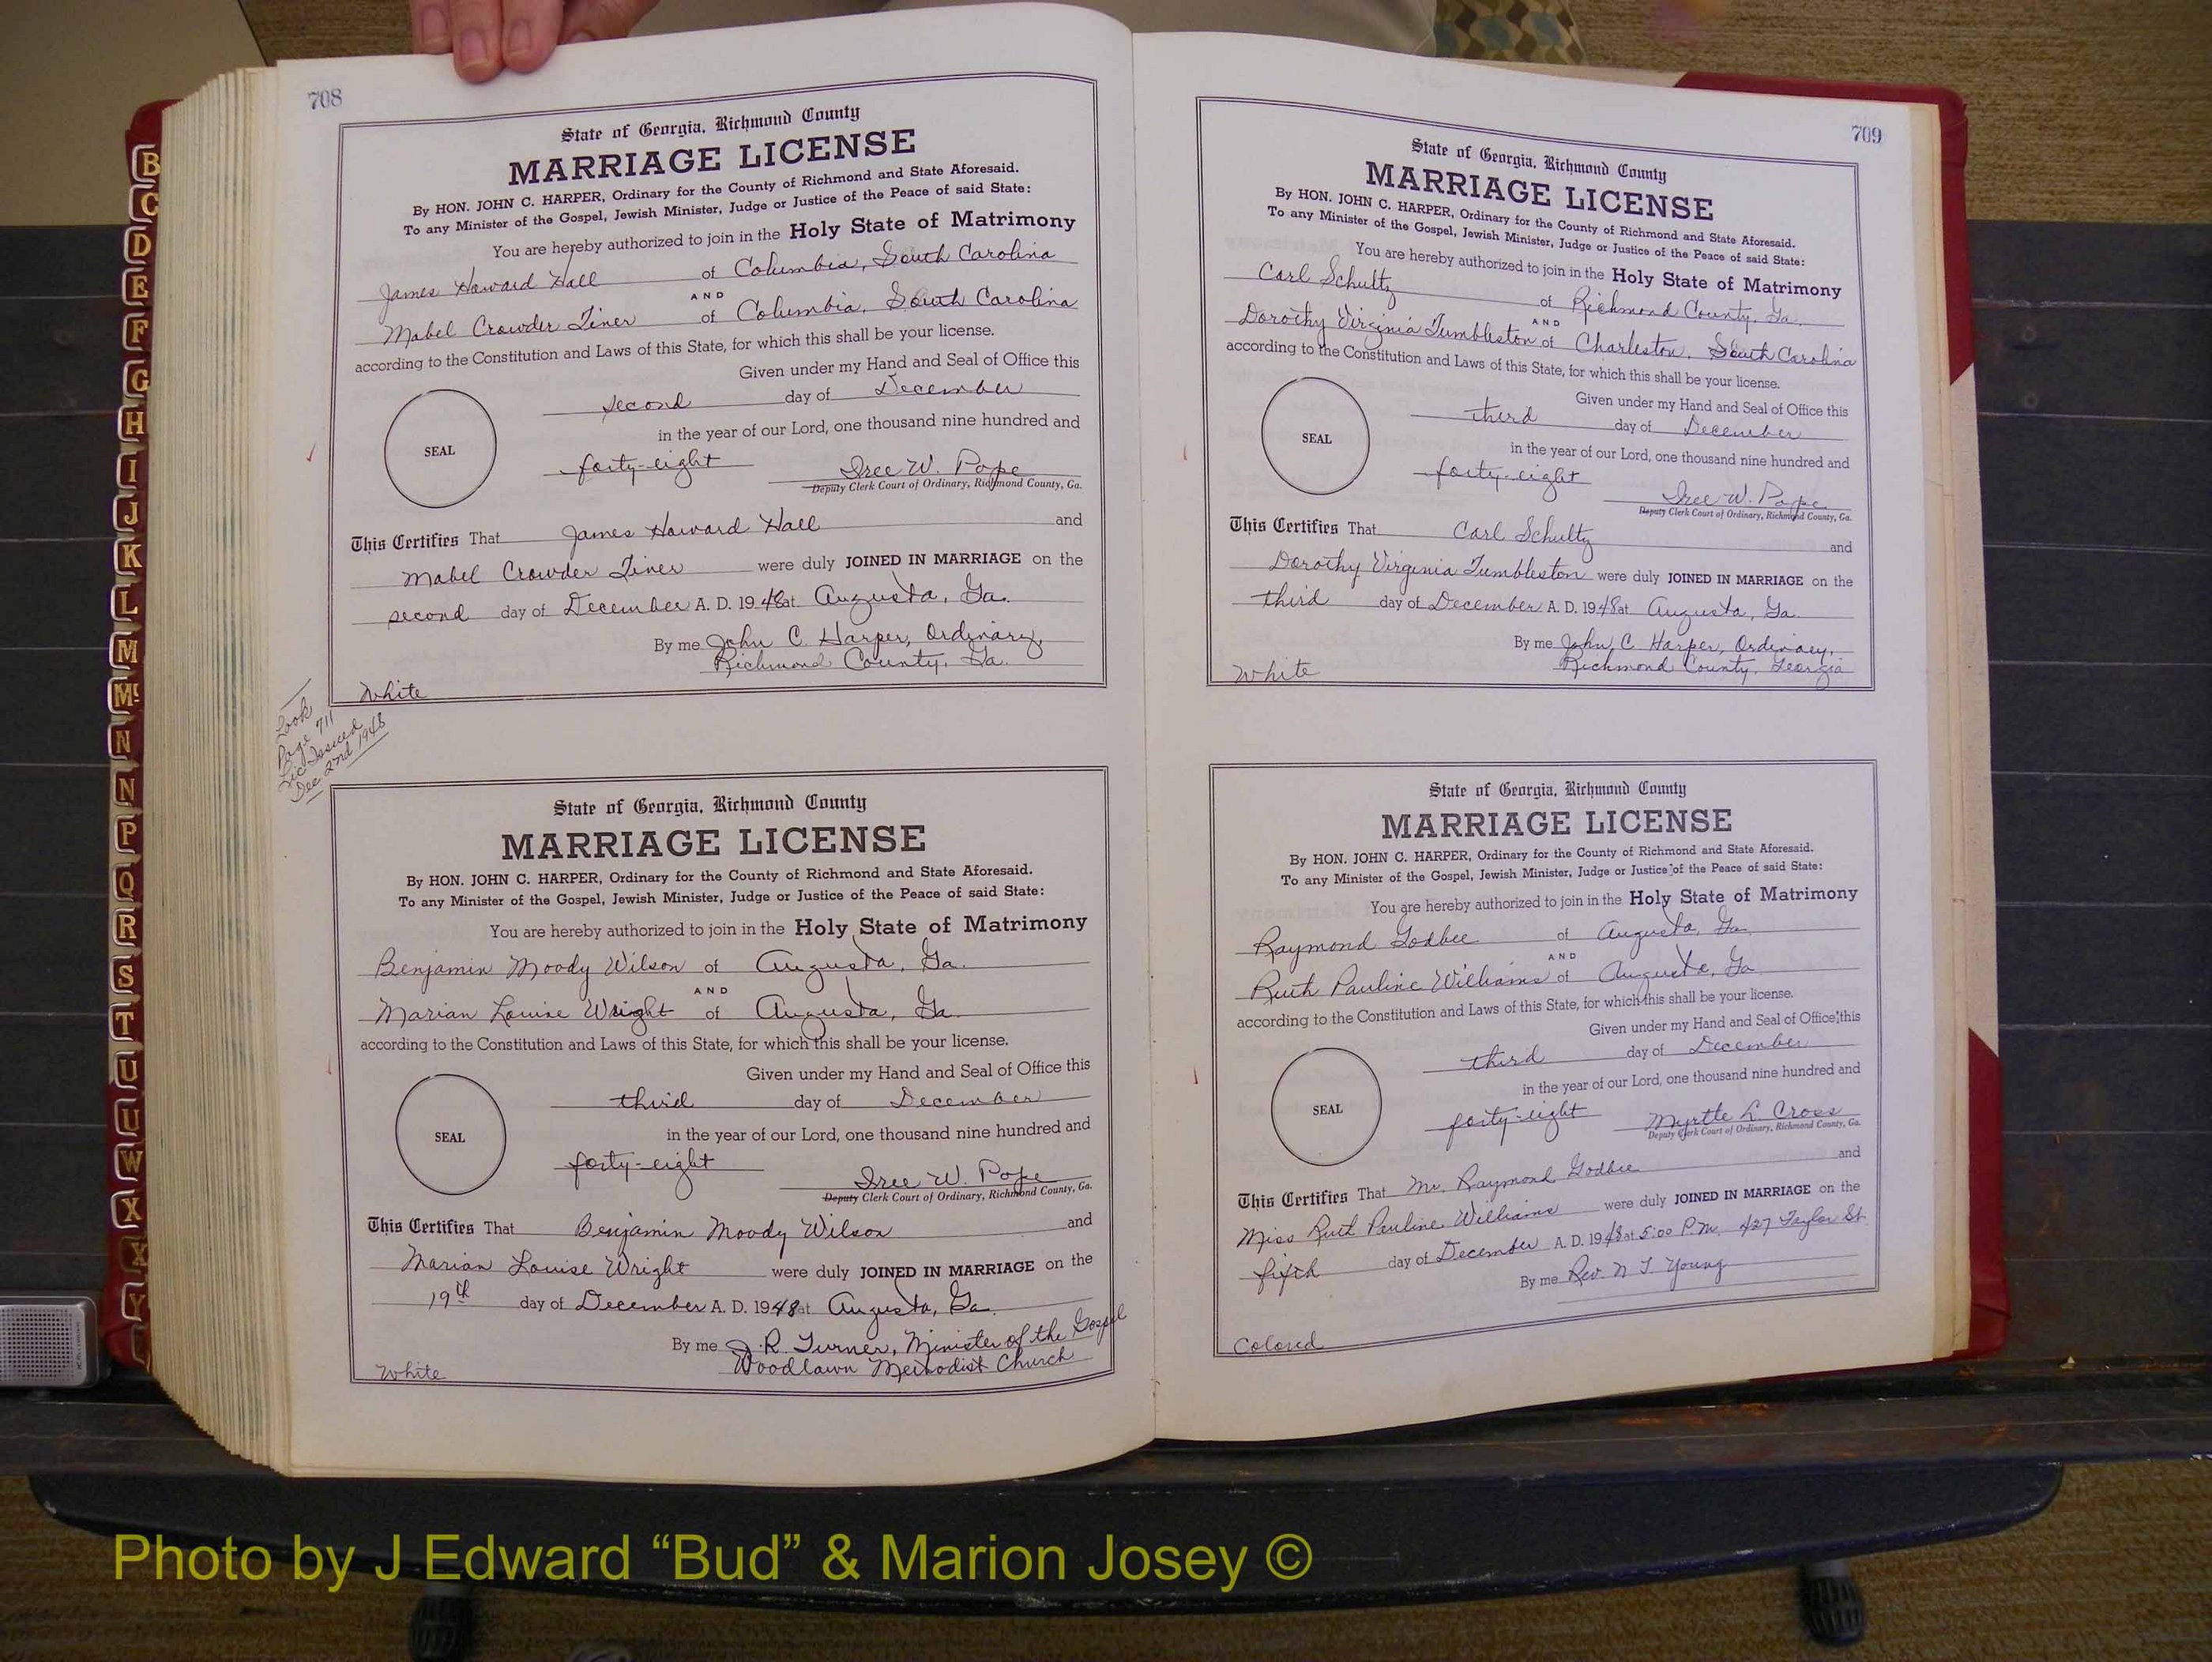 708
State of Georgia, Richmond County
MARRIAGE LICENSE
By HON. JOHN C. HARPER, Ordinary for the County of Richmond and State Aforesaid.
To any Minister of the Gospel, Jewish Minister, Judge or Justice of the Peace of said State:
You are hereby authorized to join in the Holy State of Matrimony
James Howard Hall of Columbia, South Carolina
AND
Mabel Crowder Tiner of Columbia, South Carolina
according to the Constitution and Laws of this State, for which this shall be your license.
Given under my Hand and Seal of Office this
second day of December
in the year of our Lord, one thousand nine hundred and
SEAL
forty-eight Iree W. Pope
Deputy Clerk Court of Ordinary, Richmond County, Ga.
This Certifies That James Howard Hall and
Mabel Crowder Tiner were duly JOINED IN MARRIAGE on the
second day of December A. D. 1948 at Augusta, Ga.
By me John C. Harper, Ordinary,
Richmond County, Ga.
White
Look
Page 711
Lic Issued
Dec 2nd 1948
State of Georgia, Richmond County
MARRIAGE LICENSE
By HON. JOHN C. HARPER, Ordinary for the County of Richmond and State Aforesaid.
To any Minister of the Gospel, Jewish Minister, Judge or Justice of the Peace of said State:
You are hereby authorized to join in the Holy State of Matrimony
Benjamin Moody Wilson of Augusta, Ga.
AND
Marian Louise Wright of Augusta, Ga.
according to the Constitution and Laws of this State, for which this shall be your license.
Given under my Hand and Seal of Office this
third day of December
in the year of our Lord, one thousand nine hundred and
SEAL
forty-eight Iree W. Pope
Deputy Clerk Court of Ordinary, Richmond County, Ga.
This Certifies That Benjamin Moody Wilson and
Marian Louise Wright were duly JOINED IN MARRIAGE on the
19th day of December A. D. 1948 at Augusta, Ga.
By me J. R. Turner, Minister of the Gospel
Woodlawn Methodist Church
White
709
State of Georgia, Richmond County
MARRIAGE LICENSE
By HON. JOHN C. HARPER, Ordinary for the County of Richmond and State Aforesaid.
To any Minister of the Gospel, Jewish Minister, Judge or Justice of the Peace of said State:
You are hereby authorized to join in the Holy State of Matrimony
Carl Schultz of Richmond County, Ga.
AND
Dorothy Virginia Tumbleston of Charleston, South Carolina
according to the Constitution and Laws of this State, for which this shall be your license.
Given under my Hand and Seal of Office this
third day of December
SEAL
in the year of our Lord, one thousand nine hundred and
forty-eight Iree W. Pope
Deputy Clerk Court of Ordinary, Richmond County, Ga.
This Certifies That Carl Schultz and
Dorothy Virginia Tumbleston were duly JOINED IN MARRIAGE on the
third day of December A. D. 1948 at Augusta, Ga.
By me John C. Harper, Ordinary,
Richmond County, Georgia
White
State of Georgia, Richmond County
MARRIAGE LICENSE
By HON. JOHN C. HARPER, Ordinary for the County of Richmond and State Aforesaid.
To any Minister of the Gospel, Jewish Minister, Judge or Justice of the Peace of said State:
You are hereby authorized to join in the Holy State of Matrimony
Raymond Godbee of Augusta, Ga.
AND
Ruth Pauline Williams of Augusta, Ga.
according to the Constitution and Laws of this State, for which this shall be your license.
Given under my Hand and Seal of Office this
third day of December
in the year of our Lord, one thousand nine hundred and
SEAL
forty-eight Myrtle L. Cross
Deputy Clerk Court of Ordinary, Richmond County, Ga.
This Certifies That Mr. Raymond Godbee and
Miss Ruth Pauline Williams were duly JOINED IN MARRIAGE on the
fifth day of December A. D. 1948 at 5:00 P.M. 427 Taylor St.
By me Rev. N. T. Young
Colored
B
C
D
E
F
G
H
I
J
K
L
M
Mc
N
N
P
Q
R
S
T
U
U
W
X
X
Y
Photo by J Edward “Bud” & Marion Josey ©